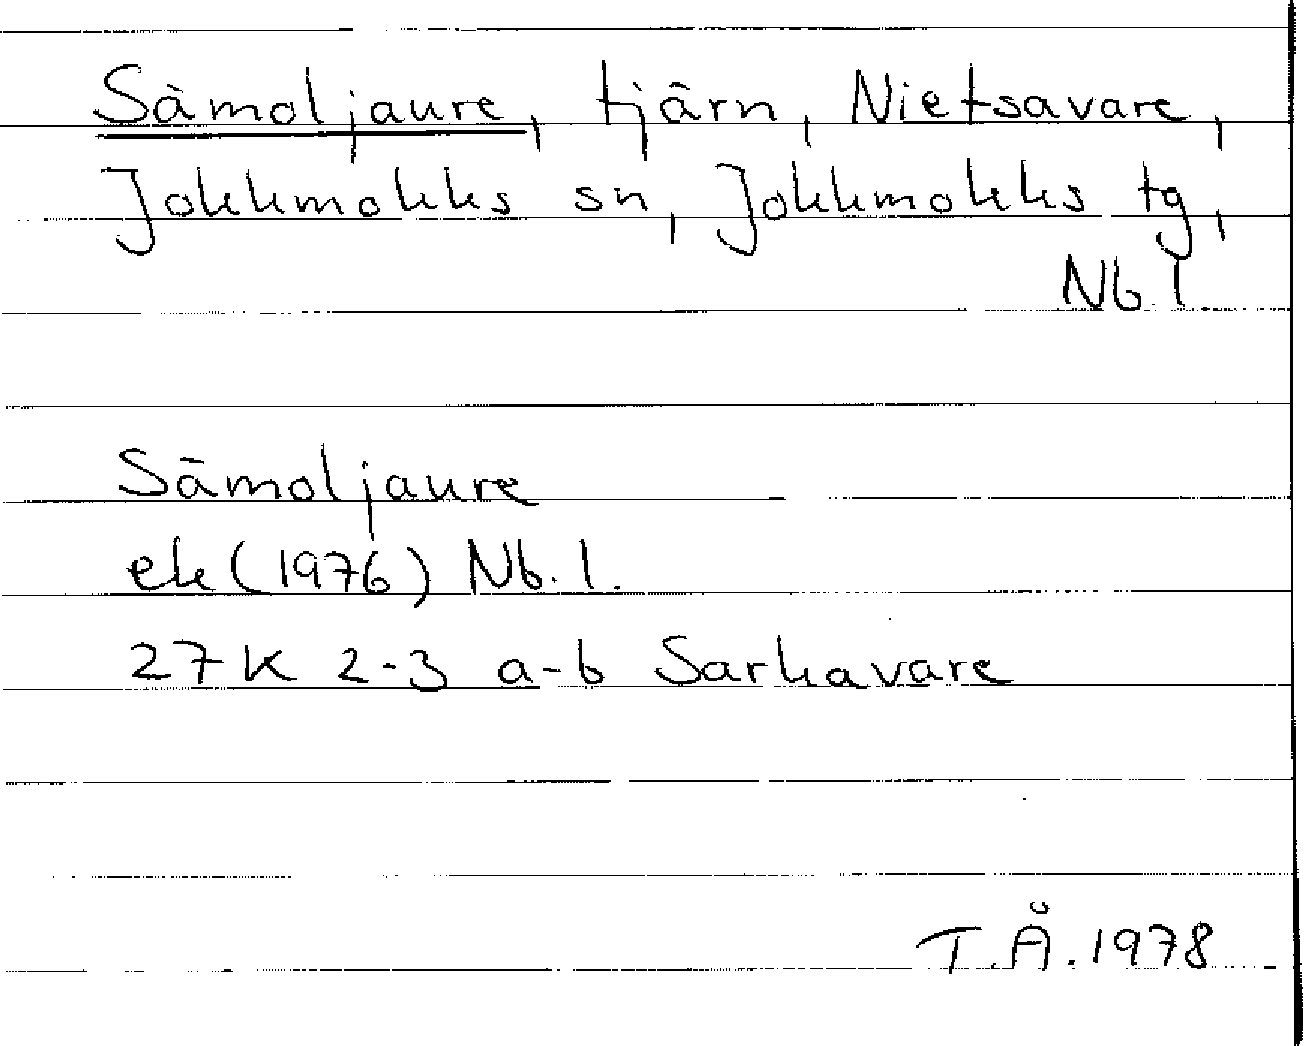 Sämoljaure, tjärn, Nietsavare,
Jokkmokks sn, Jokkmokks tg,
Nb. l.
Sämoljaure
ek (1976) Nb. l.
27 K 2-3 a-b Sarkavare
T.Å. 1978